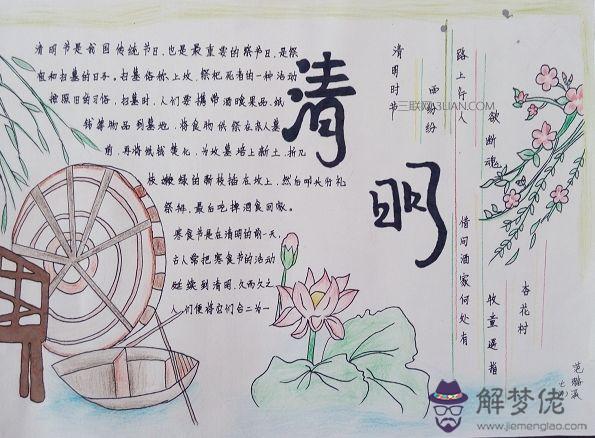 清明节是我国传统节日,也是最重要的祭节日,是祭
祖和扫墓的日子。扫墓俗称上坟,祭祀死者的一种活动
按照旧的习俗,扫墓时,人们要携带酒食果品,纸
钱等物品到墓地,将食物供祭在亲人墓
前,再将纸钱焚化,为坟墓培上新土,折几
枝嫩绿的新枝插在坟上,然后叩头行礼
祭拜,最后吃掉酒食回家。
寒食节是在清明的前一天,
古人常把寒食节的活动
延续到清明,久而久之
人们便将它们合二为一
清明
清明时节
雨纷纷
路上行人
欲断魂
借问酒家何处有
牧童遥指
杏花村
三联网 3LIAN.COM
解梦佬
www.jiemenglao.com